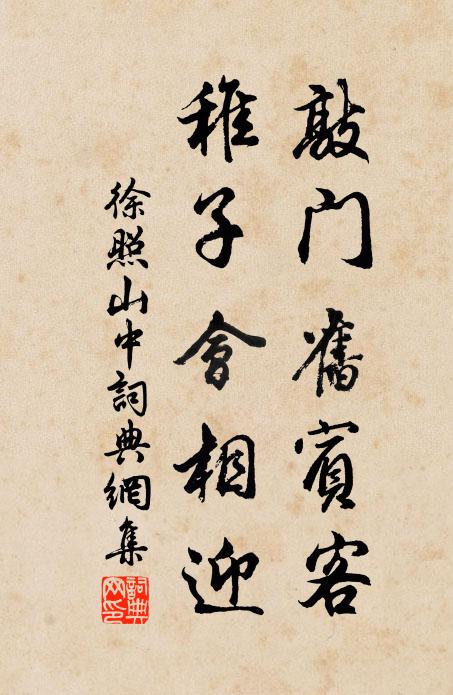 敲門舊賓客
稚子會相迎
徐照山中詞典網集
詞典网印